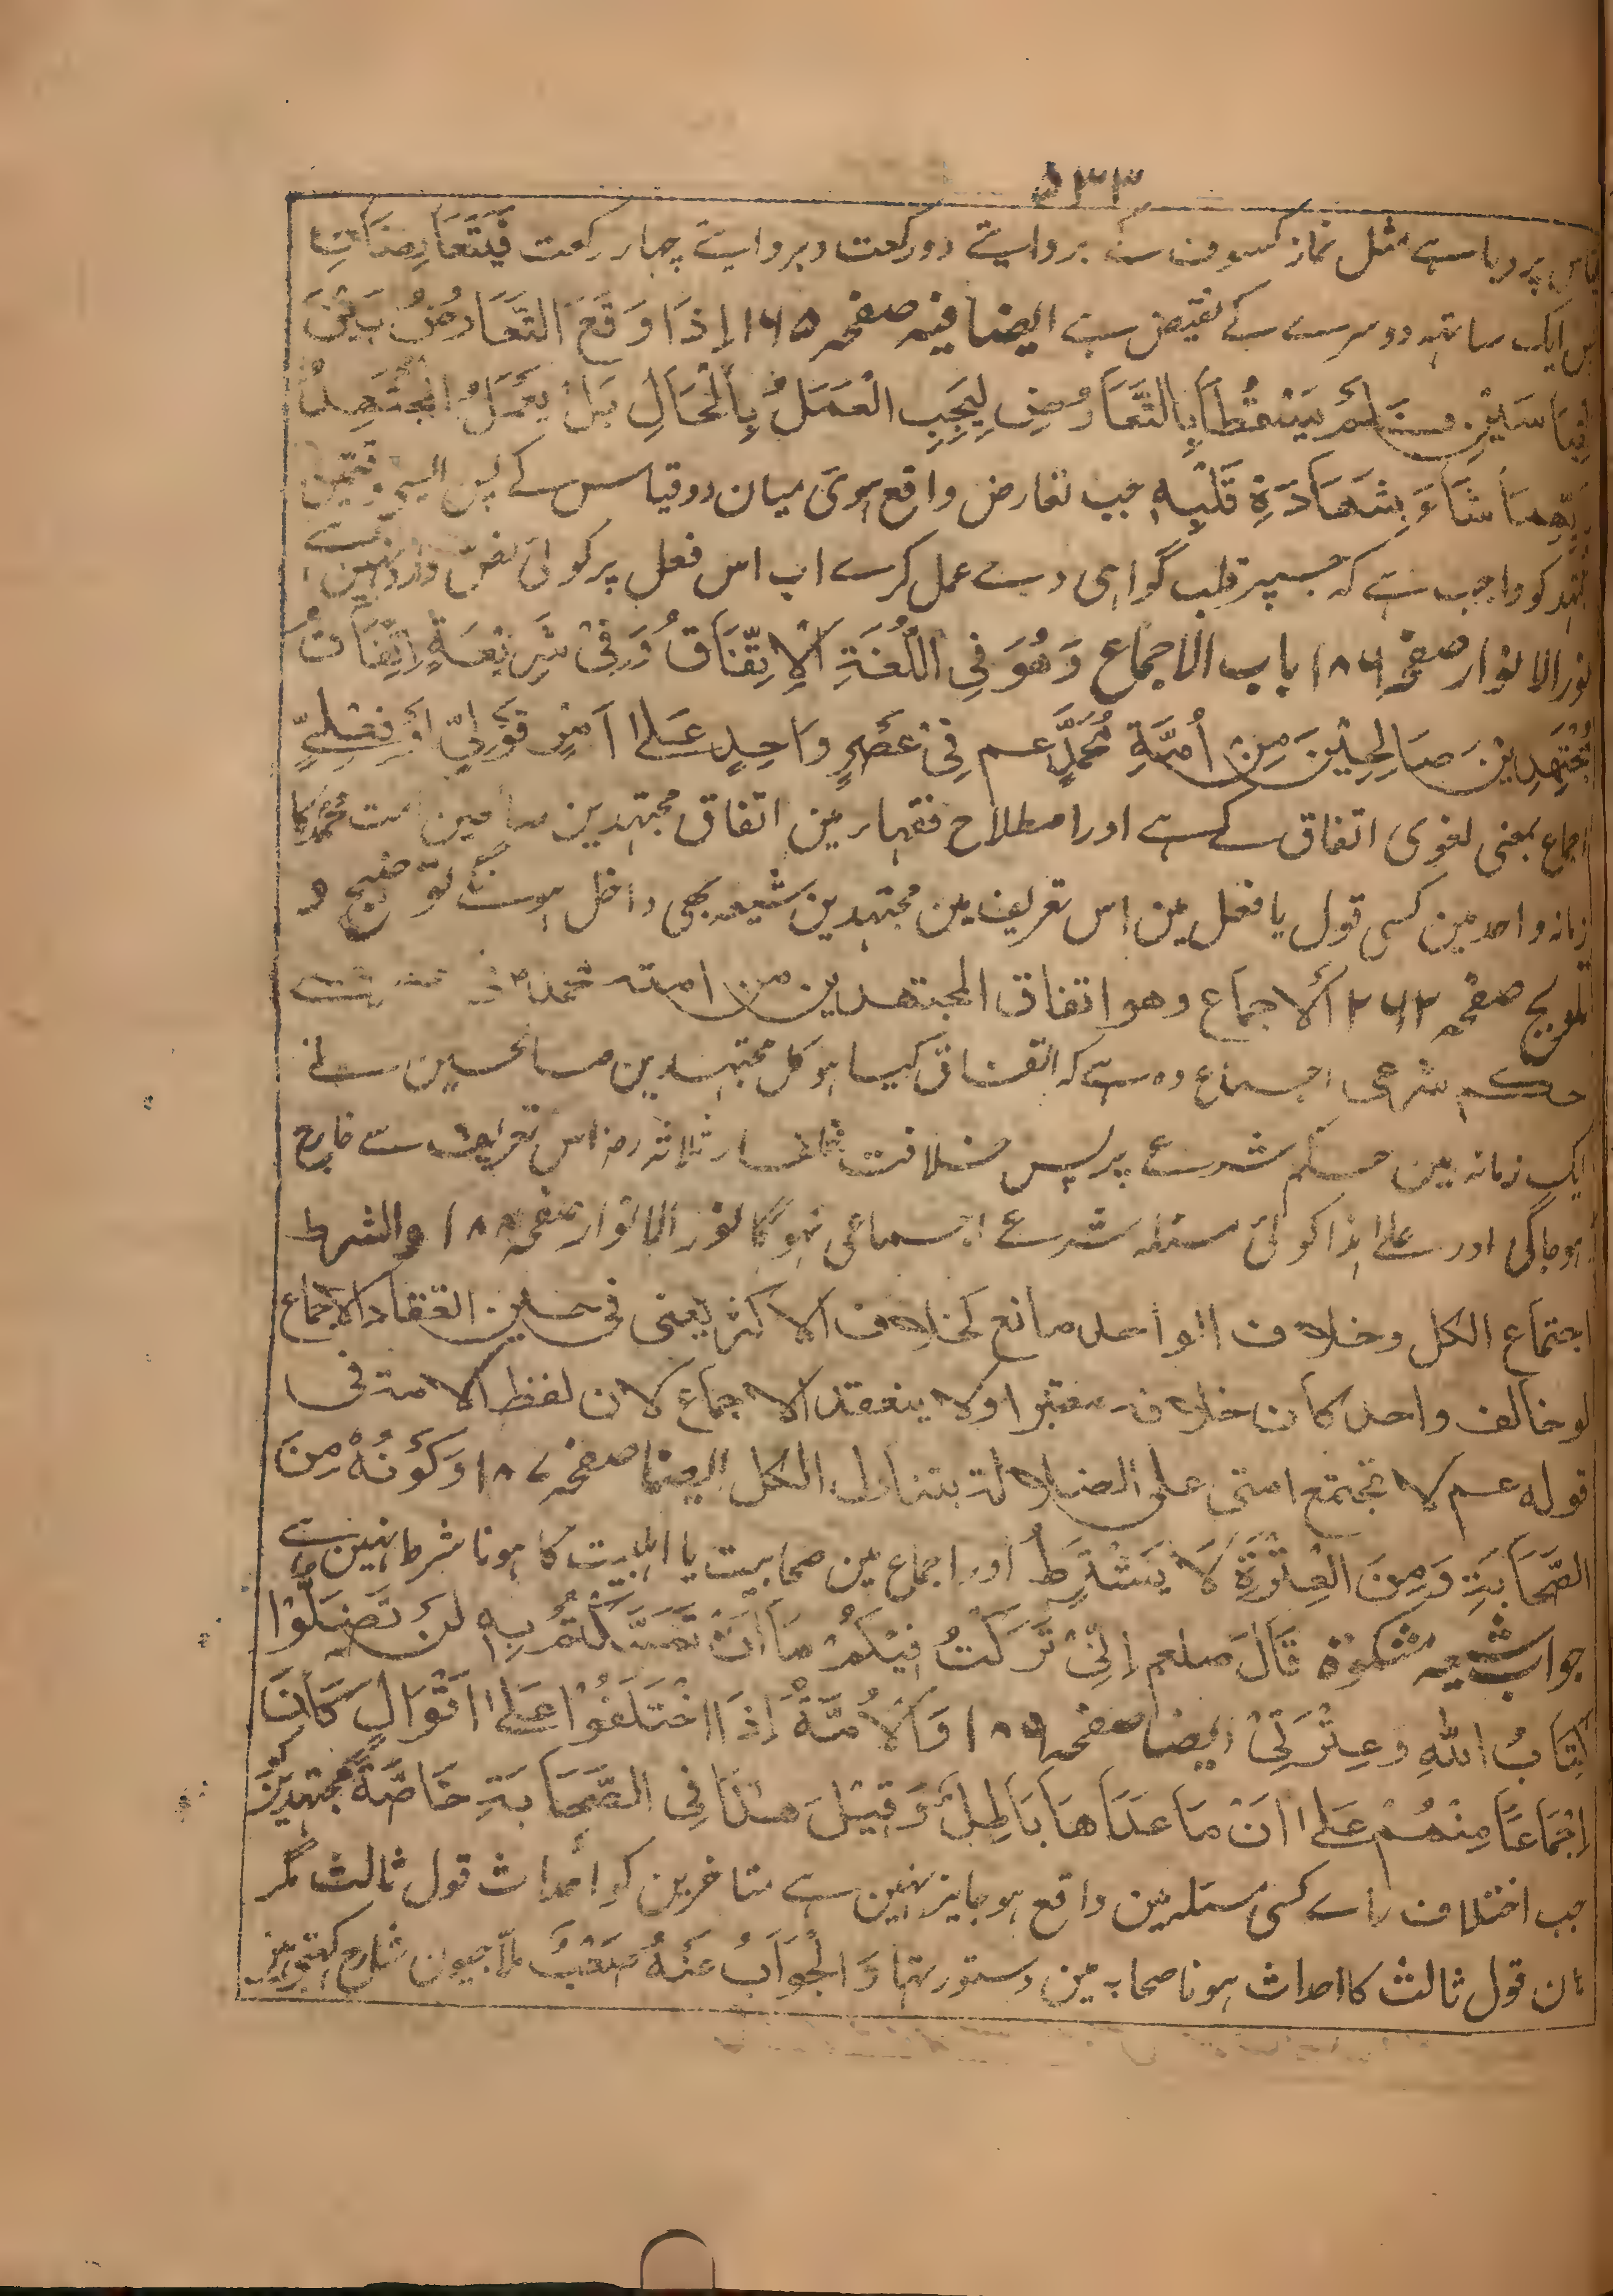 ۵۳۳
پر دیا ہے مثل نماز کسوف کے بروایتے دو رکعت و بروایتے چہار رکعت فَیَتَعَارَضَانِ
ایک ساتہہ دوسرے کے نقیض ہے ایضا فیہ صفحہ ۱۶۵ اِذَا وَقَعَ التَّعَارُضُ بَیْنَ
قِیَاسَیْنِ لَمْ یَسْقُطَا بِالتَّعَارُضِ لِیَجِبَ الْعَمَلُ بِالْحَالِ بَلْ یَعْمَلُ الْمُجْتَهِدُ
بِاَیِّهِمَا شَاءَ بِشَهَادَةِ قَلْبِهٖ جب تعارض واقع ہوی میان دو قیاس کے پس
مجتہد کو واجب ہے کہ جسپر قلب گواہی دے عمل کرے اب اس فعل پر کوئی نص وارد نہین ہے
نور الانوار صفحہ ۱۸۶ باب الاجماع وَهُوَ فِی اللُّغَةِ اَلْاِتِّفَاقُ وَفِیْ شَرِیْعَةِ اِتِّفَاقُ
مُجْتَهِدِیْنَ صَالِحِیْنَ مِنْ اُمَّةِ مُحَمَّدٍ عم فِیْ عَصْرٍ وَاحِدٍ عَلٰی اَمْرٍ قَوْلِیٍّ اَوْ فِعْلِیٍّ
اجماع بمعنی لغوی اتفاق کے ہے اور اصطلاح فقہا مین اتفاق مجتہدین صالحین امت محمد کا
زمانہ واحد مین کسی قول یا فعل مین اس تعریف مین مجتہدین شیعہ بھی داخل ہونگے توضیح و
تلویح صفحہ ۲۶۲ الاجماع وهو اتفاق المجتهدین من امة محمد
حکم شرعی اجماع وہ ہے کہ اتفاق کیا ہو کل مجتہدین صالحین نے
ایک زمانہ مین حکم شرع پر پس خلافت خلفاء ثلاثہ رض اس تعریف سے خارج
ہو جاگی اور علی ہذا کوئی مسئلہ شرع اجماعی نہوگا نور الانوار صفحہ ۱۸۸ والشرط
اجتماع الکل وخلاف الواحد مانع کخلاف الاکثر یعنی فی حین انعقاد الاجماع
لو خالف واحد کان خلافہ معتبرا ولا ینعقد الاجماع لان لفظ الامة فی
قوله عم لا تجتمع امتی علی الضلالة یتناول الکل ایضا صفحہ ۱۸۷ وَکَوْنُهٗ مِنَ
الصَّحَابَةِ وَمِنَ الْعِتْرَةِ لَا یَشْتَرِطُ اور اجماع مین صحابیت یا اہلبیت کا ہونا شرط نہین ہے
جواب شیعہ مشکوۃ قَالَ صلعم اِنِّیْ تَرَکْتُ فِیْکُمْ مَا اَنْ تَمَسَّکْتُمْ بِهٖ لَنْ تَضِلُّوْا
کِتَابُ اللهِ وَعِتْرَتِیْ ایضا صفحہ ۱۸۹ وَالْاُمَّةُ اِذَا اخْتَلَفُوْا عَلٰی اَقْوَالٍ کَانَ
اِجْمَاعًا مِنْهُمْ عَلٰی اَنَّ مَا عَدَاهَا بَاطِلٌ وَقِیْلَ هٰذَا فِی الصَّحَابَةِ خَاصَّةً مجتہدین
جب اختلاف راے کسی مسئلہ مین واقع ہو جایز نہین ہے متاخرین کو احداث قول ثالث مگر
ہان قول ثالث کا احداث ہونا صحابہ مین دستور تہا وَالْجَوَابُ عَنْهُ صَعْبٌ ملا جیون شارح کہتے ہین